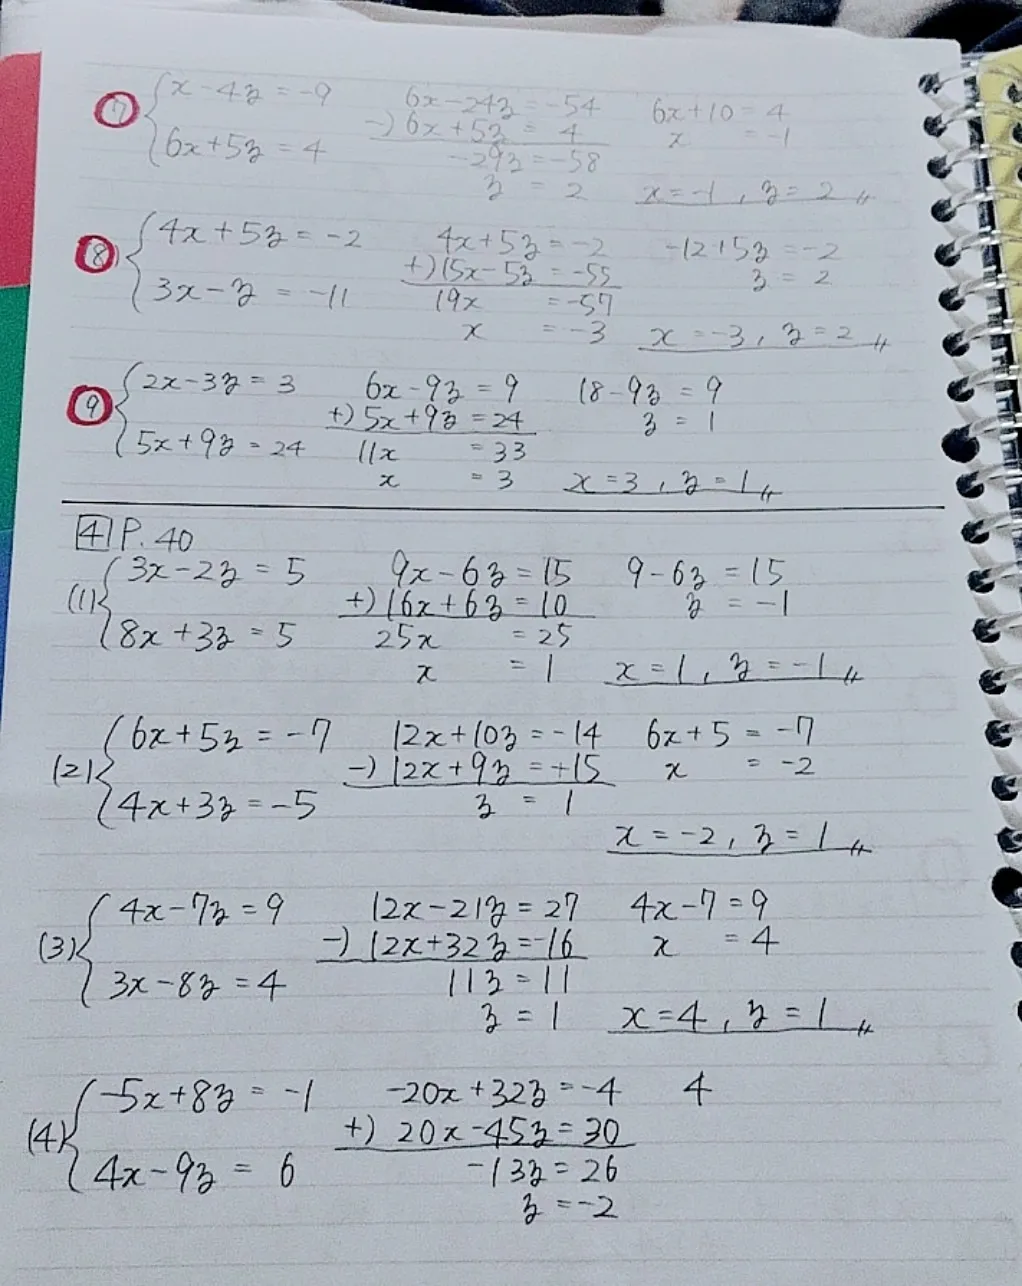 ⑦ { x-4y=-9   6x-24y=-54   6x+10=4
6x+5y=4   -) 6x+5y=4   x=-1
-29y=-58
y=2   x=-1, y=2
⑧ { 4x+5y=-2   4x+5y=-2   -12+5y=-2
3x-y=-11   +) 15x-5y=-55   y=2
19x=-57
x=-3   x=-3, y=2
⑨ { 2x-3y=3   6x-9y=9   18-9y=9
5x+9y=24   +) 5x+9y=24   y=1
11x=33
x=3   x=3, y=1
4 P.40
(1) { 3x-2y=5   9x-6y=15   9-6y=15
8x+3y=5   +) 16x+6y=10   y=-1
25x=25
x=1   x=1, y=-1
(2) { 6x+5y=-7   12x+10y=-14   6x+5=-7
4x+3y=-5   -) 12x+9y=+15   x=-2
y=1
x=-2, y=1
(3) { 4x-7y=9   12x-21y=27   4x-7=9
3x-8y=4   -) 12x+32y=-16   x=4
11y=11
y=1   x=4, y=1
(4) { -5x+8y=-1   -20x+32y=-4   4
4x-9y=6   +) 20x-45y=30
-13y=26
y=-2